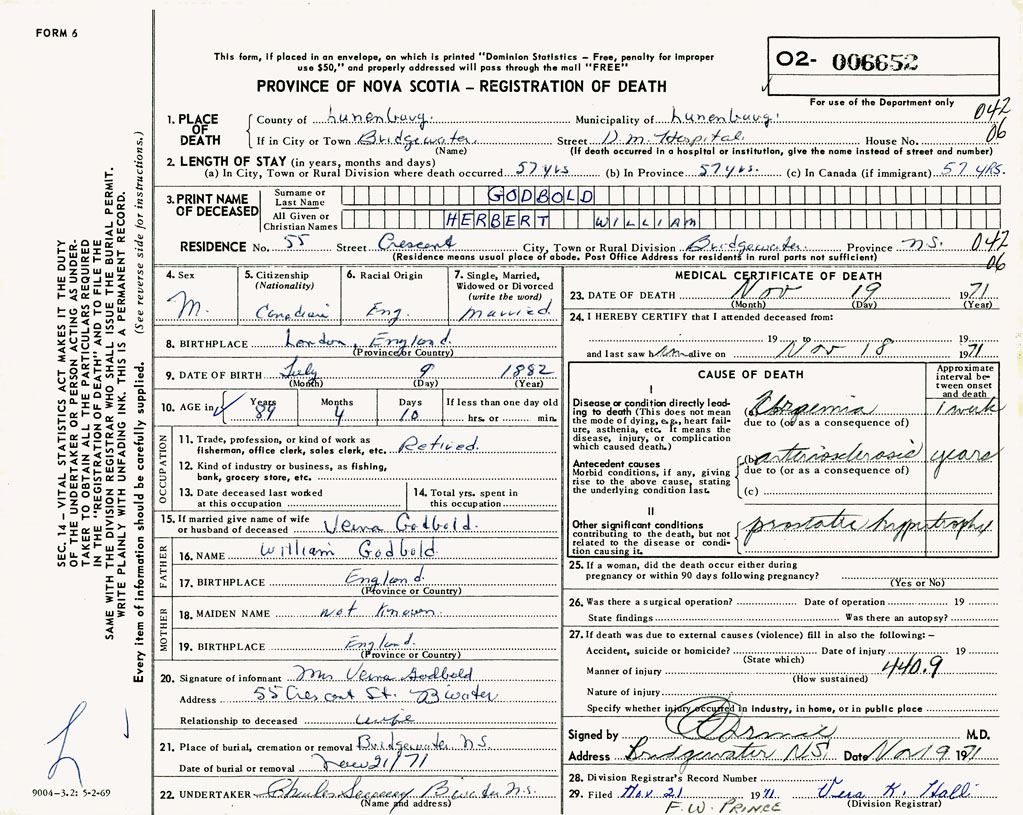 FORM 6
This form, if placed in an envelope, on which is printed "Dominion Statistics – Free, penalty for improper
use $50," and properly addressed will pass through the mail "FREE"
O2- 006652
PROVINCE OF NOVA SCOTIA – REGISTRATION OF DEATH
For use of the Department only
1. PLACE OF DEATH County of Lunenburg. Municipality of Lunenburg. 042
If in City or Town Bridgewater Street D.M. Hospital House No. 06
(Name) (If death occurred in a hospital or institution, give the name instead of street and number)
2. LENGTH OF STAY (in years, months and days)
(a) In City, Town or Rural Division where death occurred 57 yrs (b) In Province 57 yrs. (c) In Canada (if immigrant) 57 YRS.
3. PRINT NAME OF DECEASED Surname or Last Name GODBOLD
All Given or Christian Names HERBERT WILLIAM
RESIDENCE No. 55 Street Crescent City, Town or Rural Division Bridgewater Province N.S. 042
(Residence means usual place of abode. Post Office Address for residents in rural parts not sufficient) 06
4. Sex M.
5. Citizenship (Nationality) Canadian
6. Racial Origin Eng.
7. Single, Married, Widowed or Divorced (write the word) Married
8. BIRTHPLACE London, England
(Province or Country)
9. DATE OF BIRTH July 9 1882
(Month) (Day) (Year)
10. AGE in Years 89 Months 4 Days 10 If less than one day old hrs. or min.
OCCUPATION
11. Trade, profession, or kind of work as
fisherman, office clerk, sales clerk, etc. Retired.
12. Kind of industry or business, as fishing,
bank, grocery store, etc.
13. Date deceased last worked
at this occupation
14. Total yrs. spent in
this occupation
15. If married give name of wife
or husband of deceased Verna Godbold.
FATHER
16. NAME William Godbold.
17. BIRTHPLACE England
(Province or Country)
MOTHER
18. MAIDEN NAME not known
19. BIRTHPLACE England.
(Province or Country)
20. Signature of informant Mrs Verna Godbold
Address 55 Crescent St. B'water
Relationship to deceased wife
21. Place of burial, cremation or removal Bridgewater N.S.
Date of burial or removal Nov 21/71
22. UNDERTAKER Charles B'water N.S.
(Name and address)
MEDICAL CERTIFICATE OF DEATH
23. DATE OF DEATH Nov 19 1971
(Month) (Day) (Year)
24. I HEREBY CERTIFY that I attended deceased from:
19 to 19
and last saw him alive on Nov 18 1971
CAUSE OF DEATH
Approximate interval between onset and death
I
Disease or condition directly leading to death (This does not mean the mode of dying, e.g., heart failure, asthenia, etc. It means the disease, injury, or complication which caused death.)
(a) Uremia 1 week
due to (or as a consequence of)
Antecedent causes
Morbid conditions, if any, giving rise to the above cause, stating the underlying condition last.
(b) arteriosclerosis years
due to (or as a consequence of)
(c)
II
Other significant conditions
contributing to the death, but not related to the disease or condition causing it.
prostatic hypertrophy
25. If a woman, did the death occur either during
pregnancy or within 90 days following pregnancy?
(Yes or No)
26. Was there a surgical operation? Date of operation 19
State findings Was there an autopsy?
27. If death was due to external causes (violence) fill in also the following: –
Accident, suicide or homicide? Date of injury 19
(State which)
Manner of injury 440.9
(How sustained)
Nature of injury
Specify whether injury occurred in industry, in home, or in public place
Signed by M.D.
Address Bridgewater NS Date Nov 19 1971
28. Division Registrar's Record Number
29. Filed Nov 21 1971 Vera K. Hall
(Division Registrar)
F.W. PRINCE
SEC. 14 – VITAL STATISTICS ACT MAKES IT THE DUTY
OF THE UNDERTAKER OR PERSON ACTING AS UNDER-
TAKER TO OBTAIN ALL THE PARTICULARS REQUIRED
IN THE "REGISTRATION OF DEATH" AND TO FILE THE
SAME WITH THE DIVISION REGISTRAR WHO SHALL ISSUE THE BURIAL PERMIT.
WRITE PLAINLY WITH UNFADING INK. THIS IS A PERMANENT RECORD.
Every item of information should be carefully supplied. (See reverse side for instructions.)
9004-3.2: 5-2-69